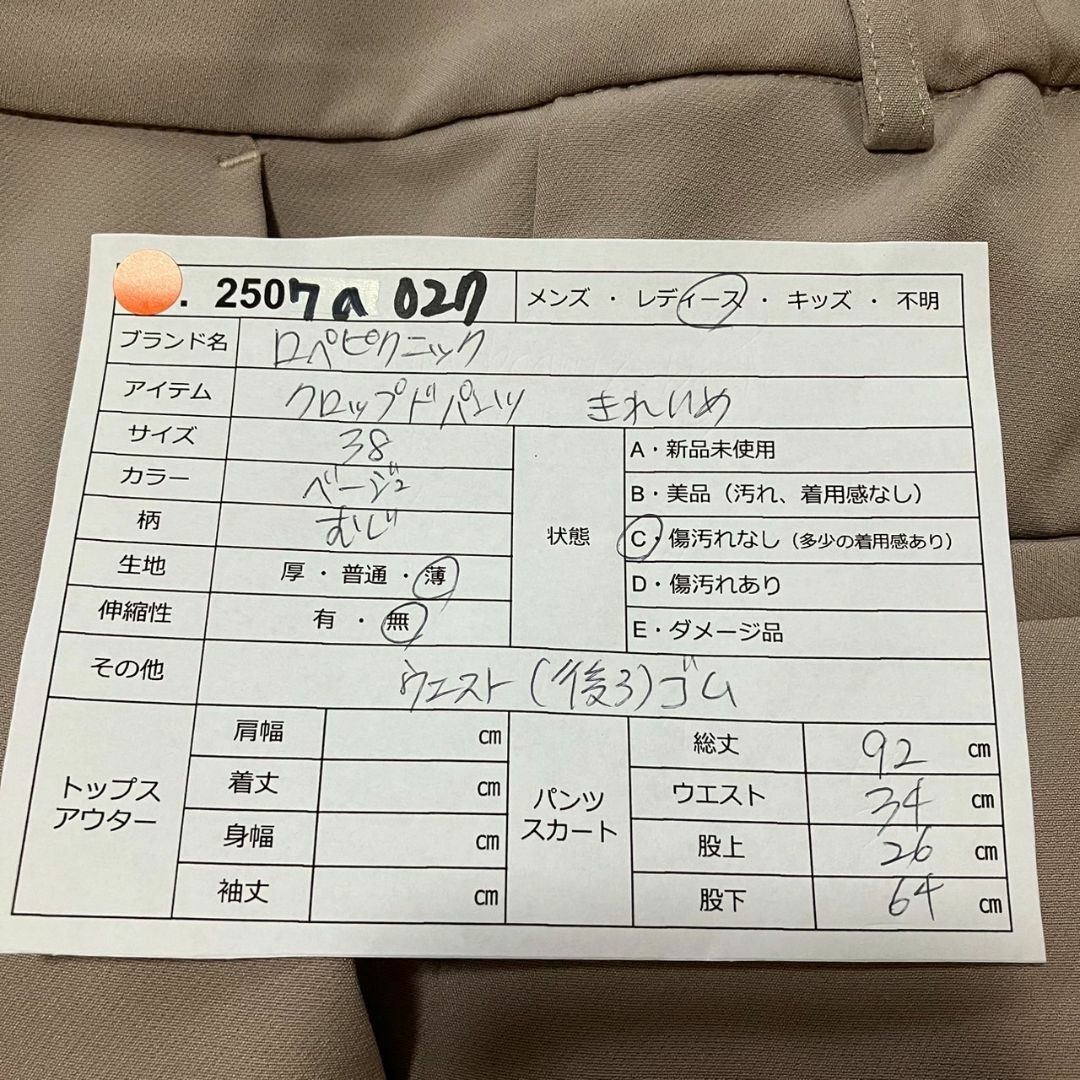 . 2507a 027 メンズ ・ レディース ・ キッズ ・ 不明
ブランド名 ロペピクニック
アイテム クロップドパンツ きれいめ
サイズ 38
カラー ベージュ
柄 むじ
生地 厚 ・ 普通 ・ 薄
伸縮性 有 ・ 無
状態
A・新品未使用
B・美品（汚れ、着用感なし）
C・傷汚れなし（多少の着用感あり）
D・傷汚れあり
E・ダメージ品
その他 ウエスト(後ろ)ゴム
トップス
アウター
肩幅 cm
着丈 cm
身幅 cm
袖丈 cm
パンツ
スカート
総丈 92 cm
ウエスト 34 cm
股上 26 cm
股下 64 cm